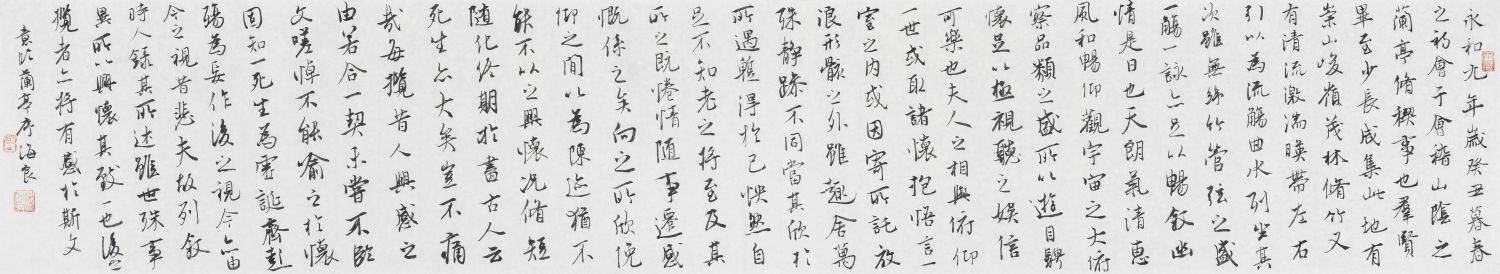 永和九年歲癸丑暮春
之初會于會稽山陰之
蘭亭脩禊事也羣賢
畢至少長咸集此地有
崇山峻嶺茂林脩竹又
有清流激湍暎帶左右
引以為流觴曲水列坐其
次雖無絲竹管弦之盛
一觴一詠亦足以暢敘幽
情是日也天朗氣清惠
風和暢仰觀宇宙之大俯
察品類之盛所以遊目騁
懷足以極視聽之娛信
可樂也夫人之相與俯仰
一世或取諸懷抱悟言一
室之內或因寄所託放
浪形骸之外雖趣舍萬
殊静躁不同當其欣於
所遇暫得於己怏然自
足不知老之將至及其
所之既惓情随事遷感
慨係之矣向之所欣俛
仰之間以為陳迹猶不
能不以之興懷況脩短
随化終期於盡古人云
死生亦大矣豈不痛
哉每攬昔人興感之
由若合一契未嘗不臨
文嗟悼不能喻之於懷
固知一死生為虛誕齊彭
殤為妄作後之視今亦由
今之視昔悲夫故列敘
時人録其所述雖世殊事
異所以興懷其致一也後之
攬者亦將有感於斯文
意臨蘭亭序 海良